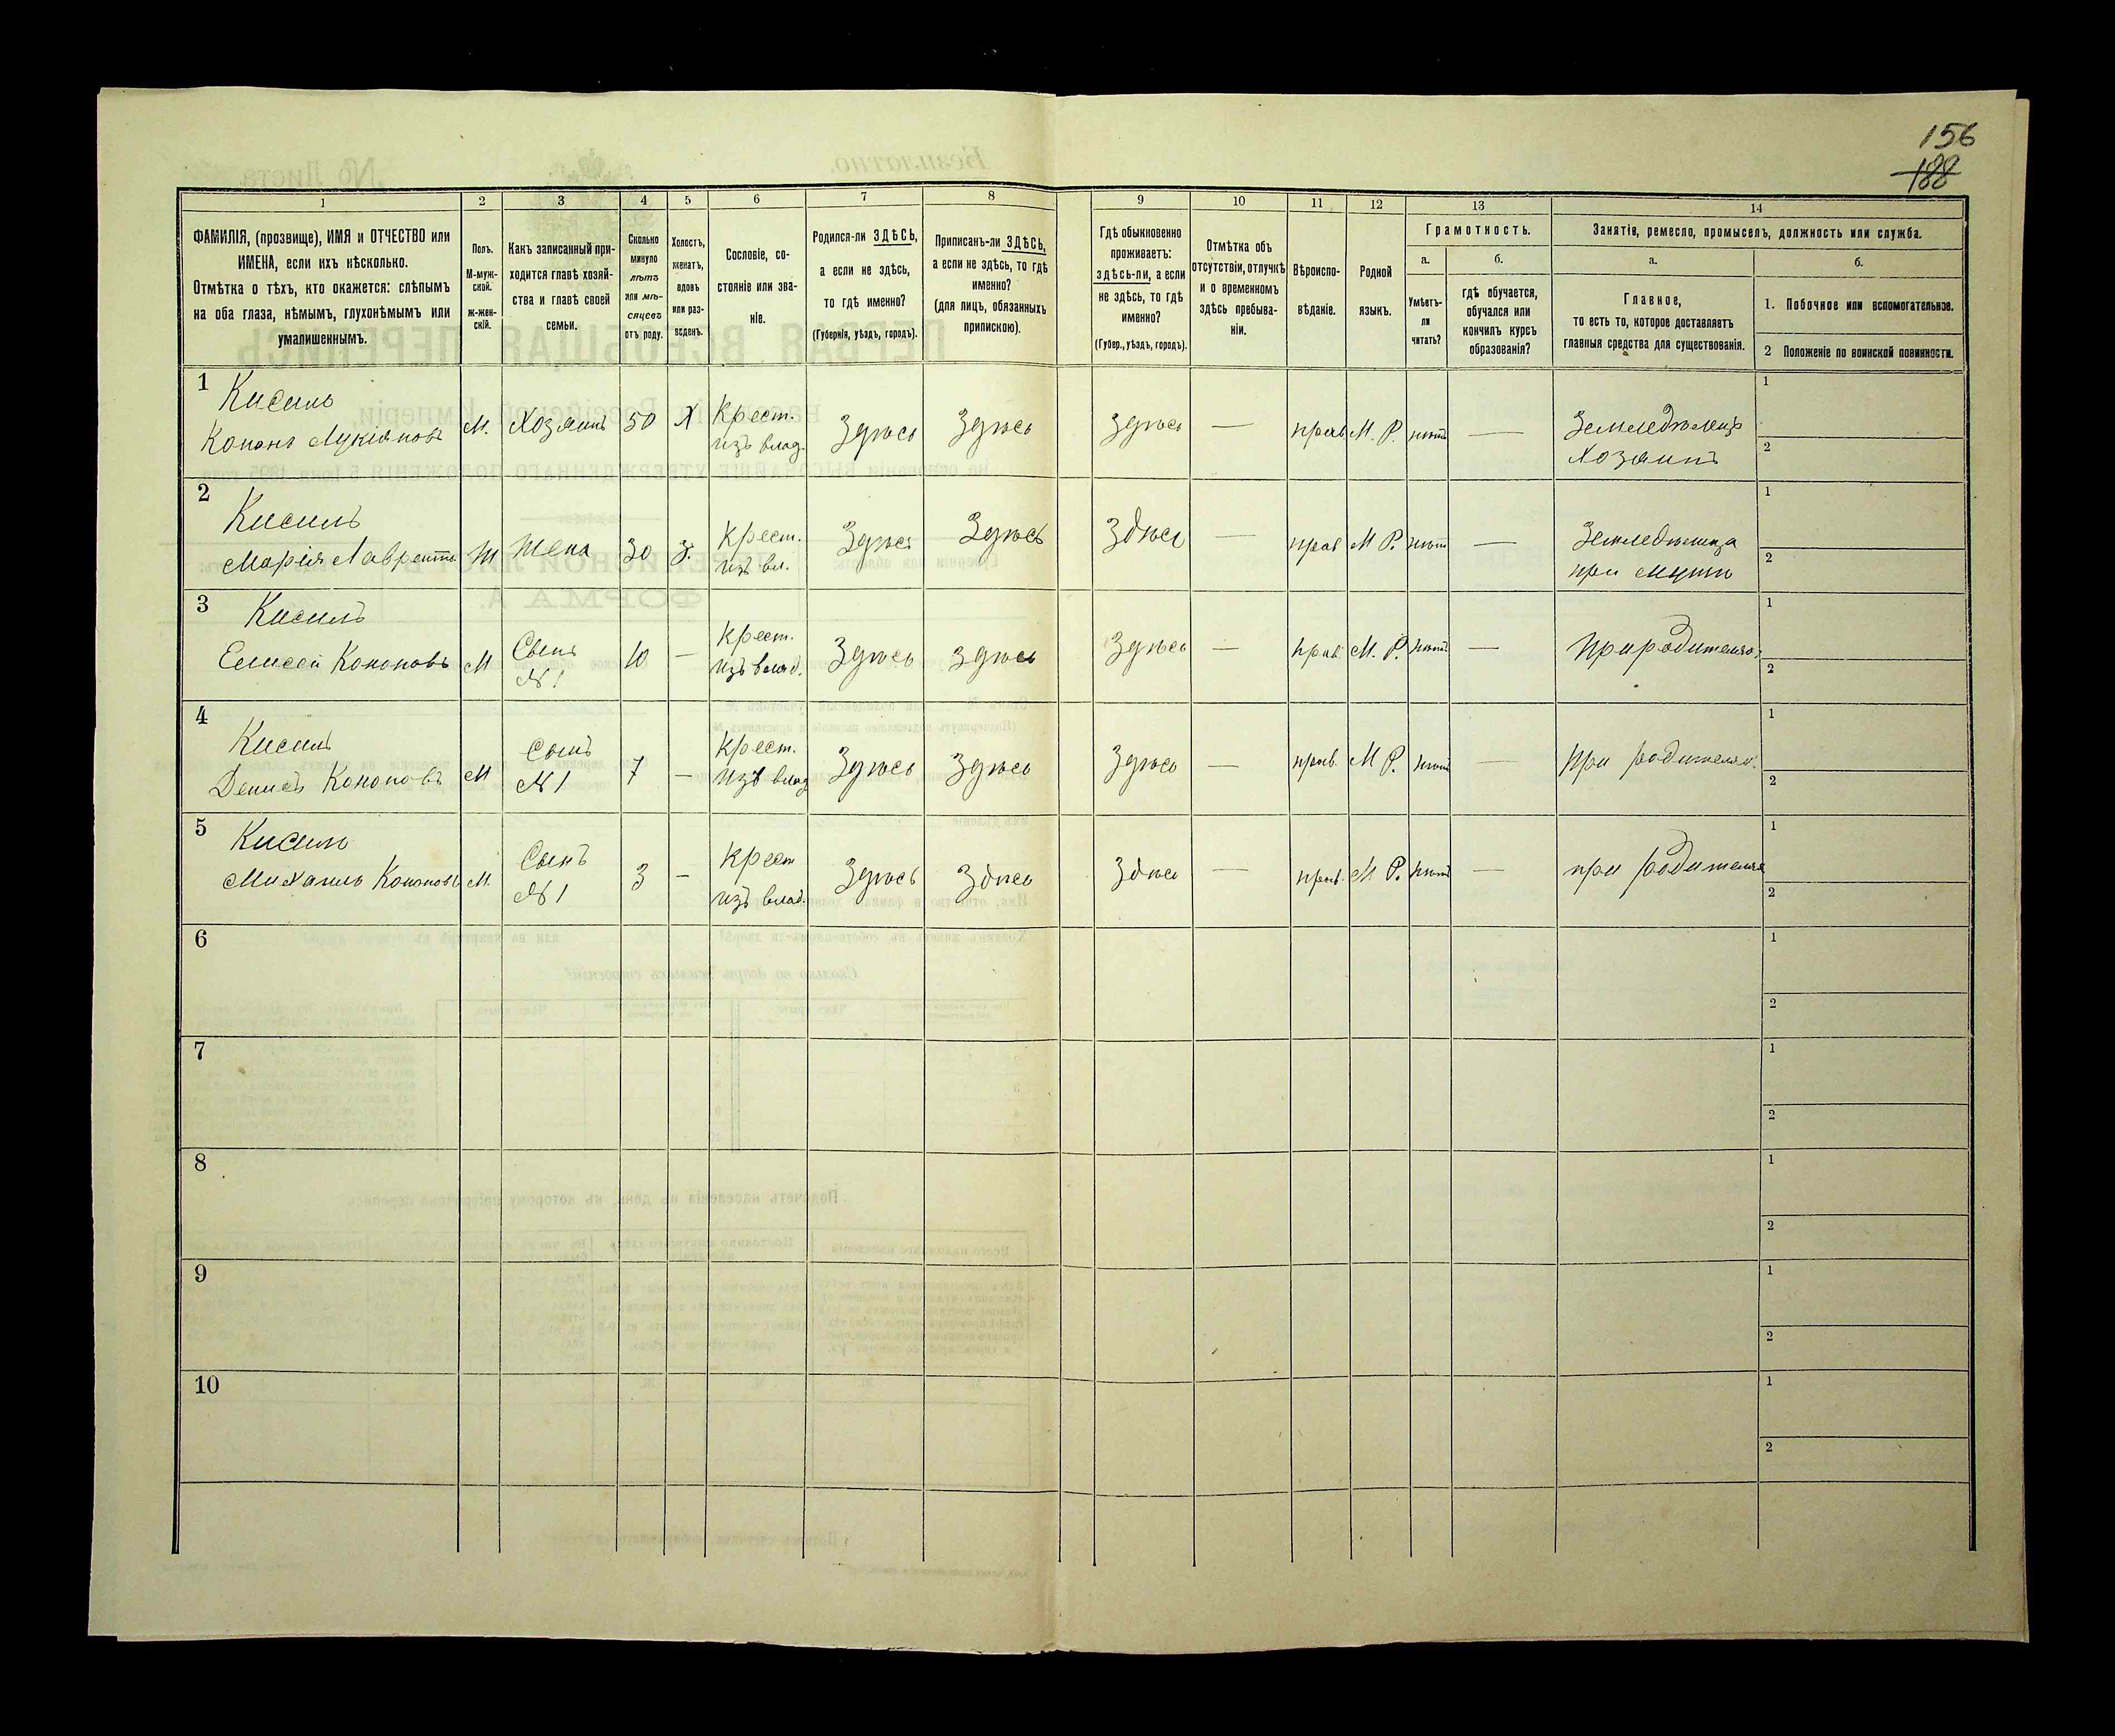 156
188
1 2 3 4 5 6 7 8 9 10 11 12 13 14
ФАМИЛІЯ, (прозвище), ИМЯ и ОТЧЕСТВО или
ИМЕНА, если ихъ нѣсколько.
Отмѣтка о тѣхъ, кто окажется: слѣпымъ
на оба глаза, нѣмымъ, глухонѣмымъ или
умалишеннымъ.
Полъ.
М-муж-
ской.
ж-жен-
скій.
Какъ записанный при-
ходится главѣ хозяй-
ства и главѣ своей
семьи.
Сколько
минуло
лѣтъ
или мѣ-
сяцевъ
отъ роду.
Холостъ,
женатъ,
вдовъ
или раз-
веденъ.
Сословіе, со-
стояніе или зва-
ніе.
Родился-ли ЗДѢСЬ,
а если не здѣсь,
то гдѣ именно?
(Губернія, уѣздъ, городъ).
Приписанъ-ли ЗДѢСЬ,
а если не здѣсь, то гдѣ
именно?
(для лицъ, обязанныхъ
припискою).
Гдѣ обыкновенно
проживаетъ:
здѣсь-ли, а если
не здѣсь, то гдѣ
именно?
(Губер., уѣздъ, городъ).
Отмѣтка объ
отсутствіи, отлучкѣ
и о временномъ
здѣсь пребыва-
ніи.
Вѣроиспо-
вѣданіе.
Родной
языкъ.
Грамотность.
а.
Умѣетъ-
ли
читать?
б.
гдѣ обучается,
обучался или
кончилъ курсъ
образованія?
Занятіе, ремесло, промыселъ, должность или служба.
а.
Главное,
то есть то, которое доставляетъ
главныя средства для существованія.
б.
1. Побочное или вспомогательное.
2 Положеніе по воинской повинности.
1 Кисиль
Кононъ Лукіяновъ М. Хозяинъ 50 Х Крест. изъ влад. Здѣсь Здѣсь Здѣсь — прав. М. Р. нѣтъ — Земледѣлецъ
Хозяинъ
1
2
2 Кисиль
Марія Лаврентьев. Ж Жена 30 З. Крест. изъ вл. Здѣсь Здѣсь Здѣсь — прав М Р. нѣтъ — Земледѣлица
при мужѣ
1
2
3 Кисиль
Елисей Кононовъ М Сынъ № 1 10 — Крест. изъ влад. Здѣсь Здѣсь Здѣсь — прав. М. Р. нѣтъ — При родителях
1
2
4 Кисиль
Денисъ Кононовъ М Сынъ № 1 7 — Крест. изъ влад Здѣсь Здѣсь Здѣсь — прав. М Р. нѣтъ — При родителях.
1
2
5 Кисиль
Михаилъ Кононовъ М. Сынъ № 1 3 — Крест изъ влад. Здѣсь Здѣсь Здѣсь — прав. М Р. нѣтъ — при родителях
1
2
6
1
2
7
1
2
8
1
2
9
1
2
10
1
2